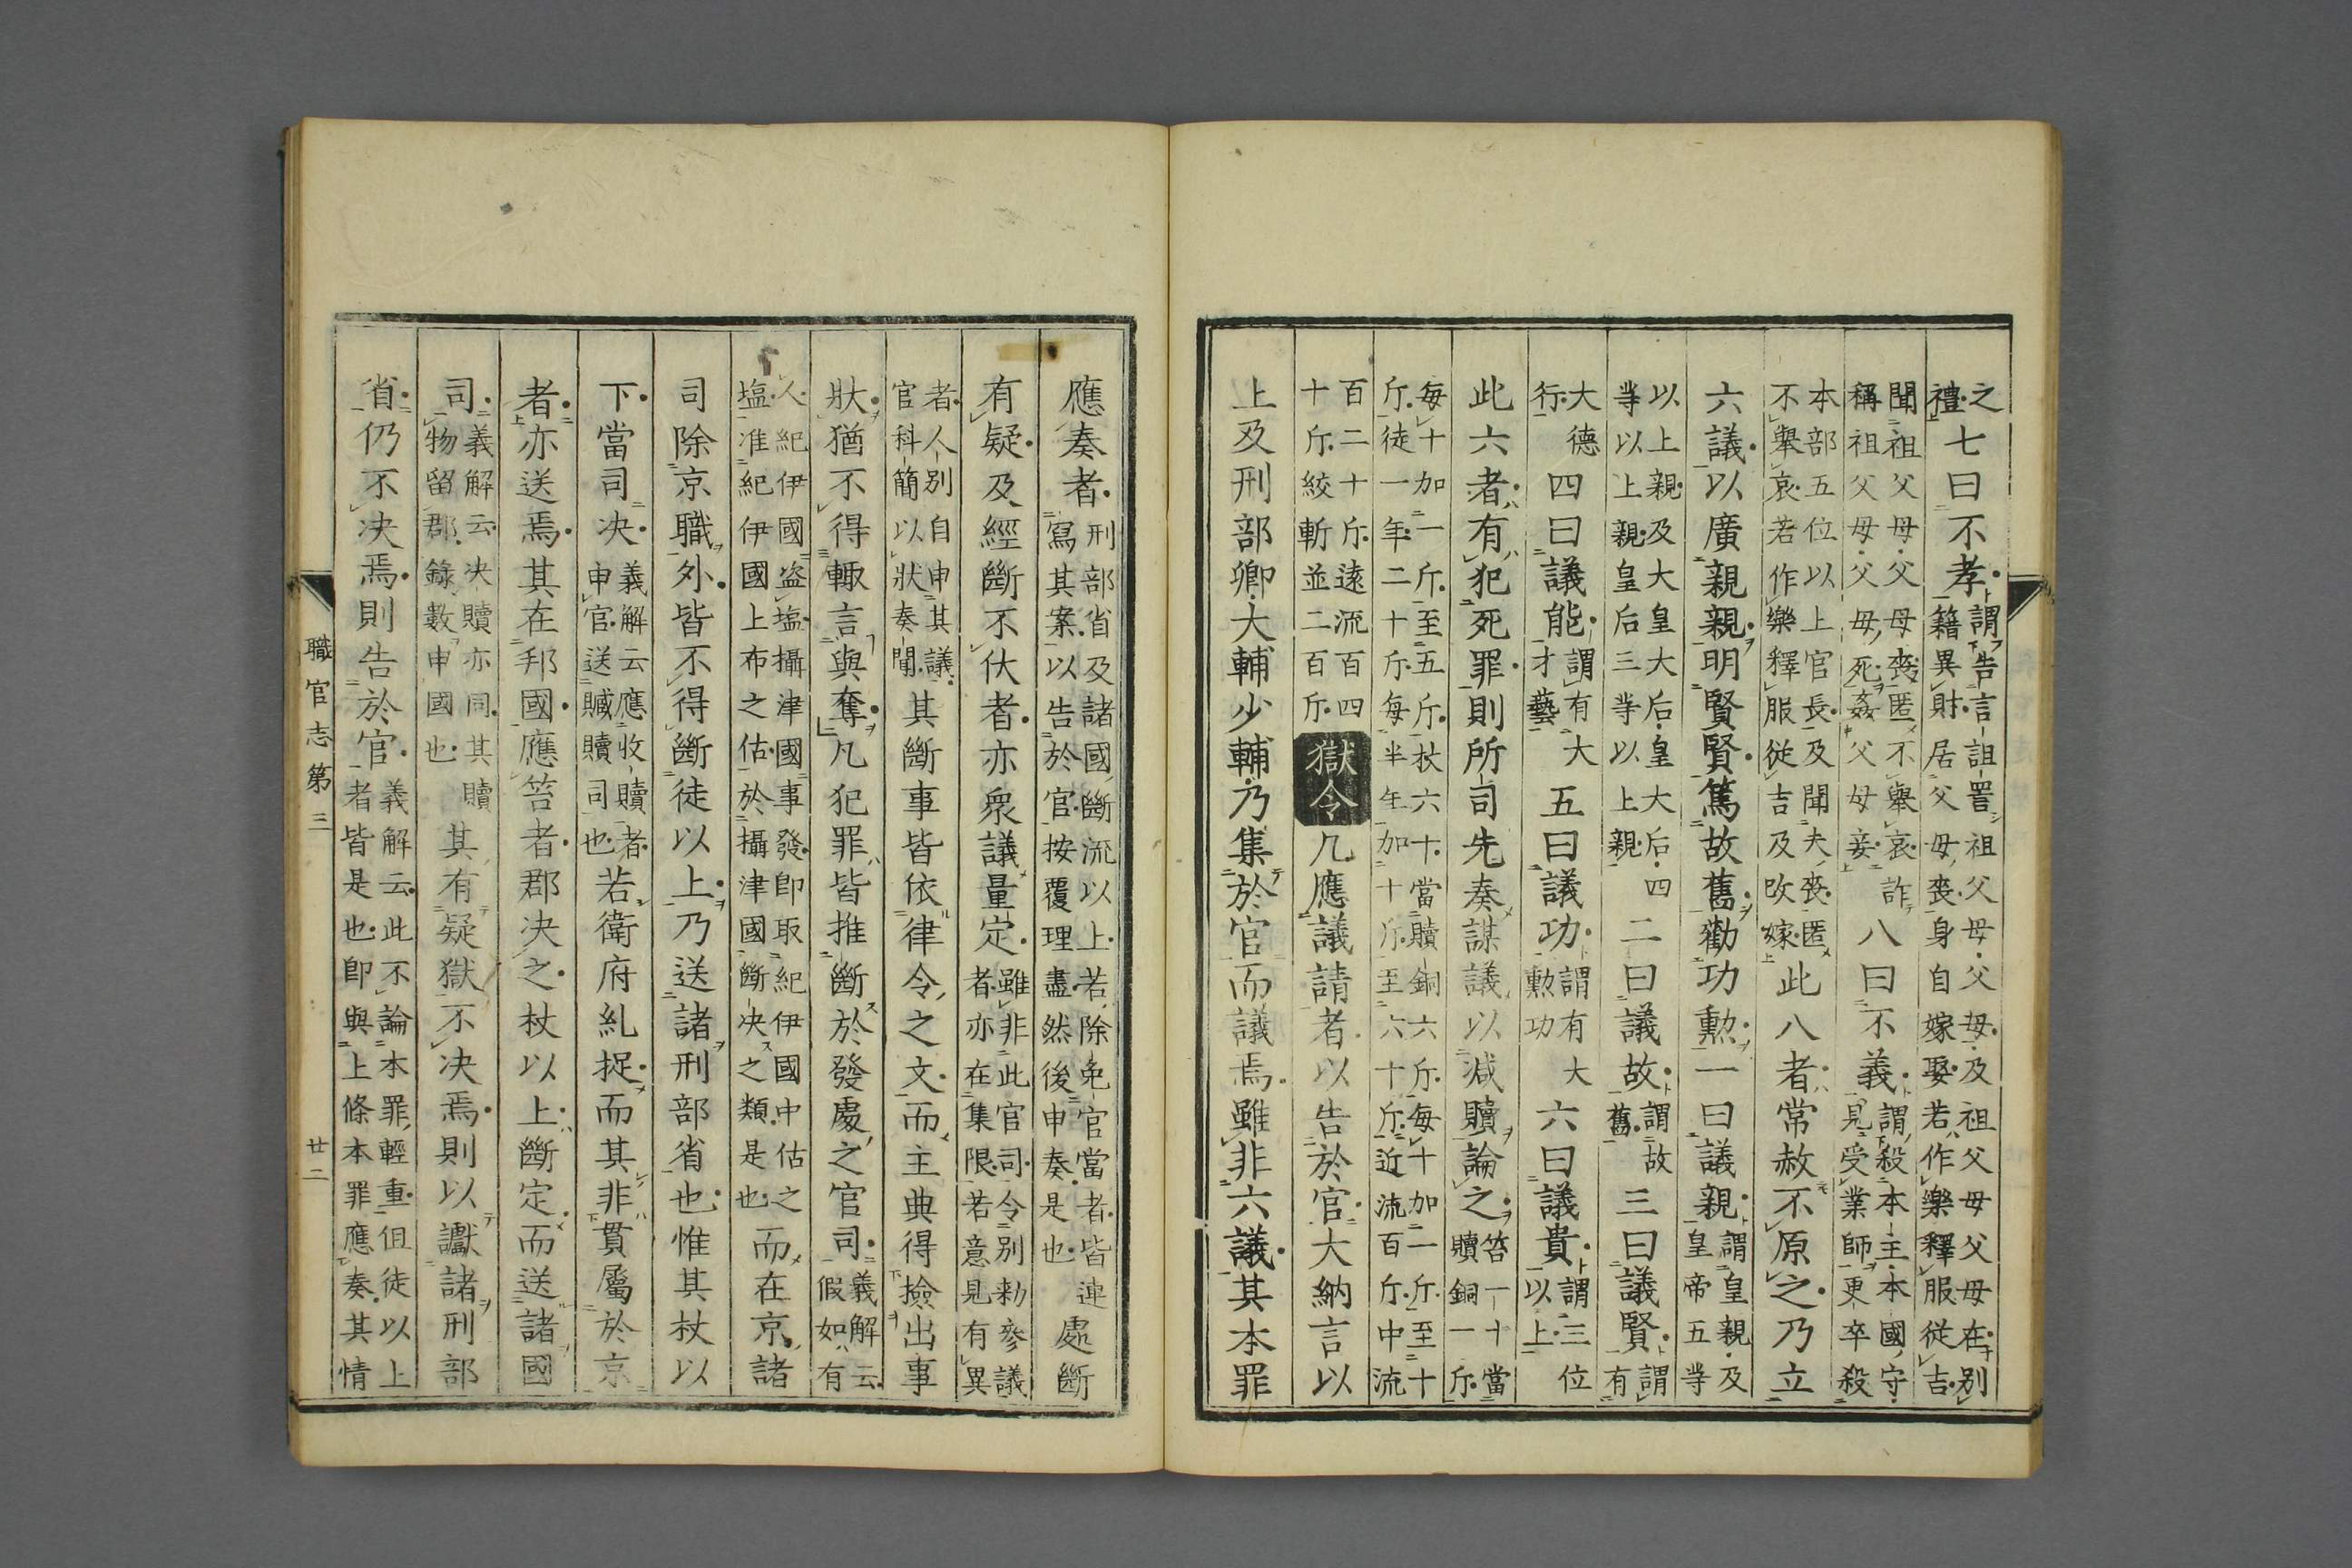 之禮七曰不孝謂告言詛詈祖父母父母及祖父母父母在別籍異財居父母喪身自嫁娶若作樂釋服從吉
聞祖父母父母喪匿不舉哀詐稱祖父母父母死姦父母妾八曰不義謂殺本主本國守見受業師更卒殺
本部五位以上官長及聞夫喪匿不舉哀若作樂釋服從吉及改嫁此八者常赦不原之乃立
六議以廣親親明賢賢篤故舊勸功勲一曰議親謂皇親及皇帝五等
以上親及大皇大后皇大后四等以上親皇后三等以上親二曰議故謂故舊三曰議賢謂有
大德行四曰議能謂有大才藝五曰議功謂有大勲功六曰議貴謂三位以上
此六者有犯死罪則所司先奏謀議以減贖論之笞一十當贖銅一斤
每十加一斤至五斤杖六十當贖銅六斤每十加一斤至十斤徒一年二十斤每半年加十斤至六十斤近流百斤中流
百二十斤遠流百四十斤絞斬並二百斤獄令凡應議請者以告於官大納言以
上及刑部卿大輔少輔乃集於官而議焉雖非六議其本罪
應奏者刑部省及諸國斷流以上若除免官當者皆連寫其案以告於官按覆理盡然後申奏是也處斷
有疑及經斷不伏者亦衆議量定雖非此官司令別勅參議者亦在集限若意見有異
者人別自申其議官科簡以狀奏聞其斷事皆依律令之文而主典得撿出事
狀猶不得輙言與奪凡犯罪皆推斷於發處之官司義解云假如有
人紀伊國盜塩攝津國事發即取紀伊國中估之塩准紀伊國上布之估於攝津國斷決之類是也而在京諸
司除京職外皆不得斷徒以上乃送諸刑部省也惟其杖以
下當司決義解云應收贖者申官送贓贖司也若衛府糺捉而其非貫屬於京
者亦送焉其在邦國應笞者郡決之杖以上斷定而送諸國
司義解云決贖亦同其贖物留郡錄數申國也其有疑獄不決焉則以讞諸刑部
省仍不決焉則告於官義解云此不論本罪輕重但徒以上者皆是也即與上條本罪應奏其情
職官志第三 廿二